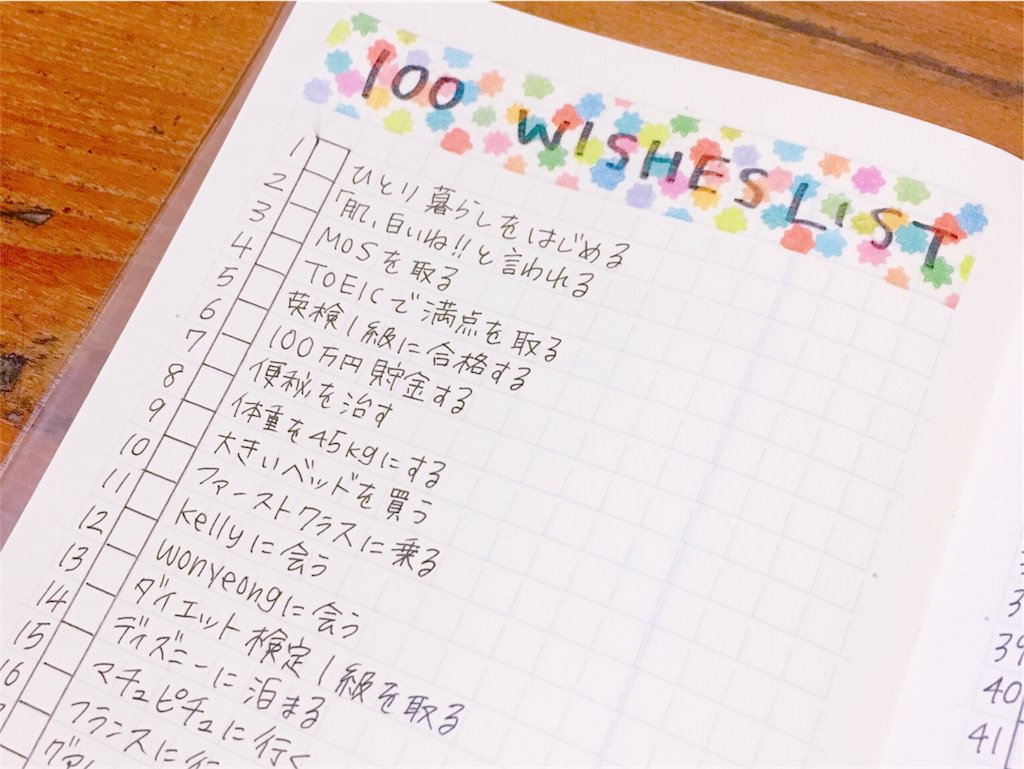 100 WISHES LIST
1 ひとり暮らしをはじめる
2 「肌、白いね!!と言われる
3 MOSを取る
4 TOEICで満点を取る
5 英検1級に合格する
6 100万円貯金する
7 便秘を治す
8 体重を45kgにする
9 大きいベッドを買う
10 ファーストクラスに乗る
11 kellyに会う
12 wonyeongに会う
13 ダイエット検定1級を取る
14 ディズニーに泊まる
15 マチュピチュに行く
16 フランスに行
39
40
41